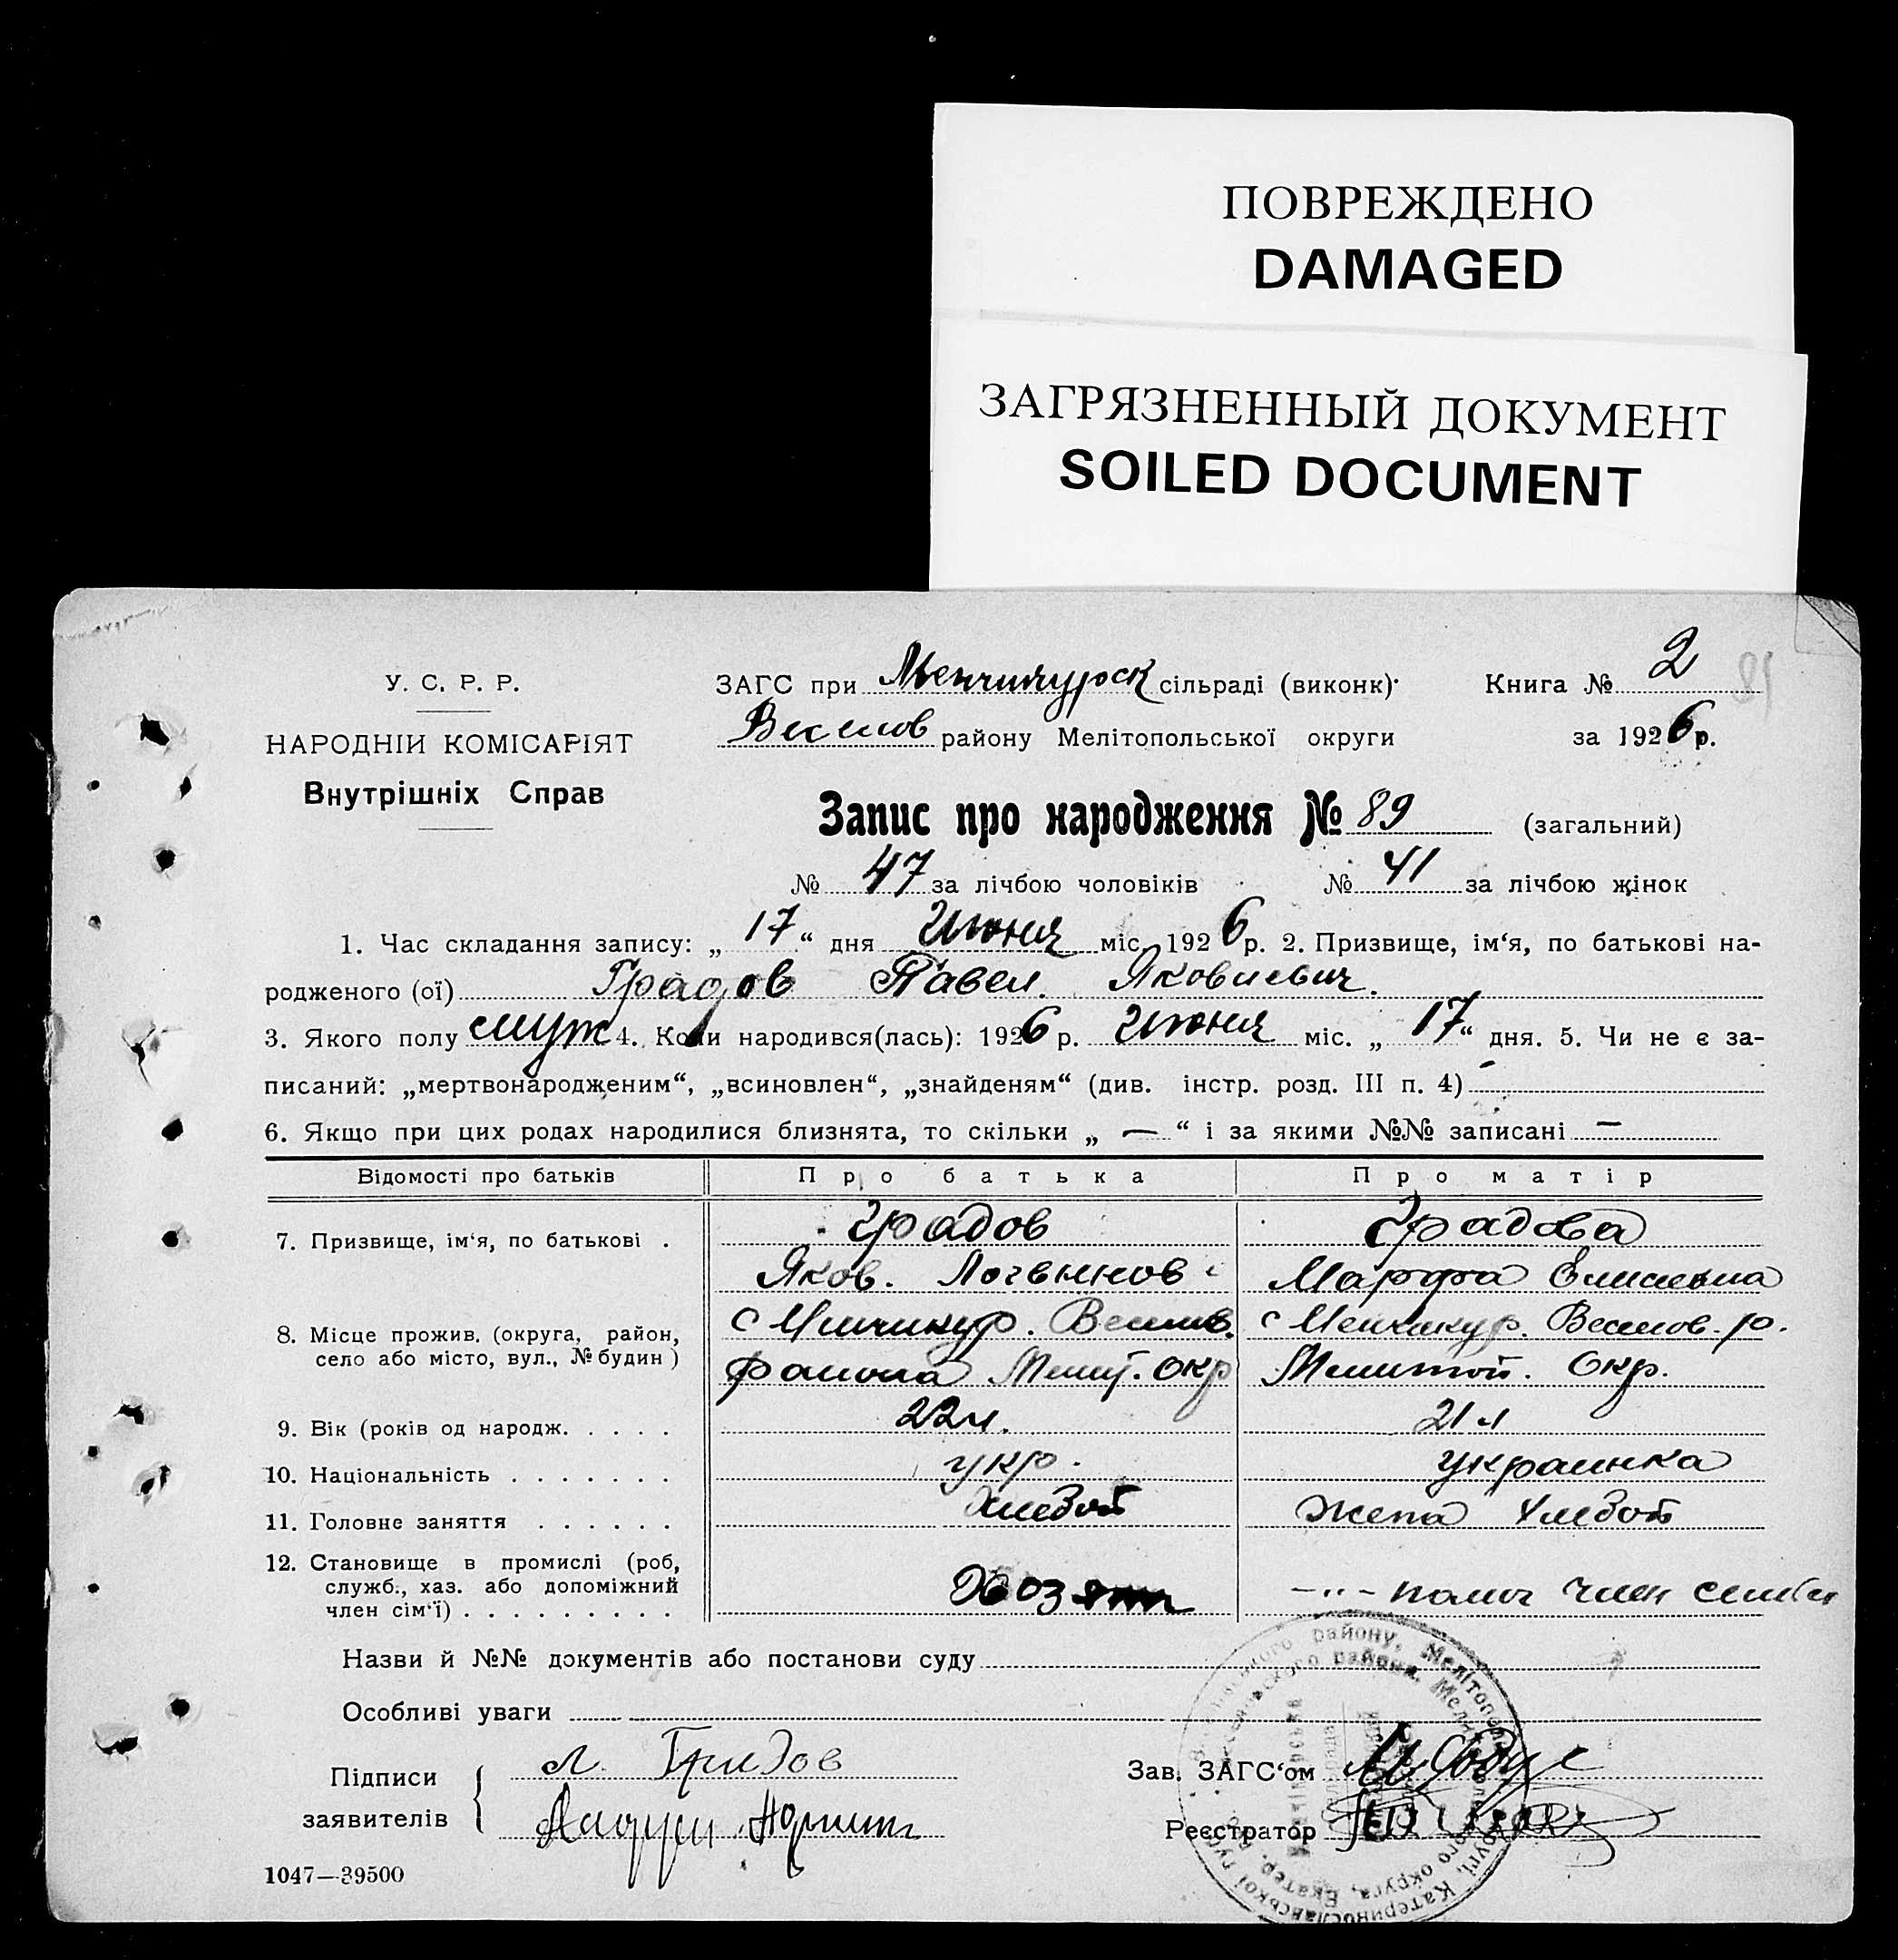 ПОВРЕЖДЕНО
DAMAGED
ЗАГРЯЗНЕННЫЙ ДОКУМЕНТ
SOILED DOCUMENT
У. С. Р. Р.
НАРОДНІЙ КОМІСАРІЯТ
Внутрішніх Справ
ЗАГС при Менчикурск сільраді (виконк).
Веселов району Мелітопольської округи
Книга № 2
89
за 1926 р.
Запис про народження № 89 (загальний)
№ 47 за лічбою чоловіків № 41 за лічбою жінок
1. Час складання запису: „ 17 “ дня Июня міс. 1926 р. 2. Призвище, ім‘я, по батькові на-
родженого (ої) Градов Павел Яковлевич.
3. Якого полу муж 4. Коли народився(лась): 1926 р. Июня міс. „ 17 “ дня. 5. Чи не є за-
писаний: „мертвонародженим“, „всиновлен“, „знайденям“ (див. інстр. розд. III п. 4) –
6. Якщо при цих родах народилися близнята, то скільки „ — “ і за якими №№ записані —
Відомості про батьків Про батька Про матір
7. Призвище, ім‘я, по батькові . Градов Градова
Яков. Логвинов Марфа Елисеевна
8. Місце прожив. (округа, район, с Менчикур. Веселов. с Менчикур. Веселов. р.
село або місто, вул., № будин) района Мелит. Окр Мелитоп. Окр.
9. Вік (років од народж. . . . . 22 л. 21 л
10. Національність . . . . . . . укр. украинка
11. Головне заняття . . . . . . Хлебоп Жена Хлебоп
12. Становище в промислі (роб,
служб., хаз. або допоміжний
член сім‘ї) . . . . . . . . . Хозяин –„– помоч член семьи
Назви й №№ документів або постанови суду
Особливі уваги
Підписи
заявителів
Я. Градов
Зав. ЗАГС‘ом
Реєстратор
1047—39500